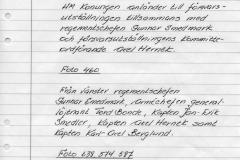 HM Konungen anländer till försvars-
utställningen tillsammans med
regementschefen Gunnar Smedmark
och försvarsutställningens Kommitté-
ordförande Axel Hernek.
Foto 460
Från vänster regementschefen
Gunnar Smedmark, Arméchefen general-
löjtnant Tord Bonde, Kapten Jan-Erik
Smedler, Kapten Axel Hernek samt
Kapten Karl-Axel Berglund.
Foto 638, 574 587